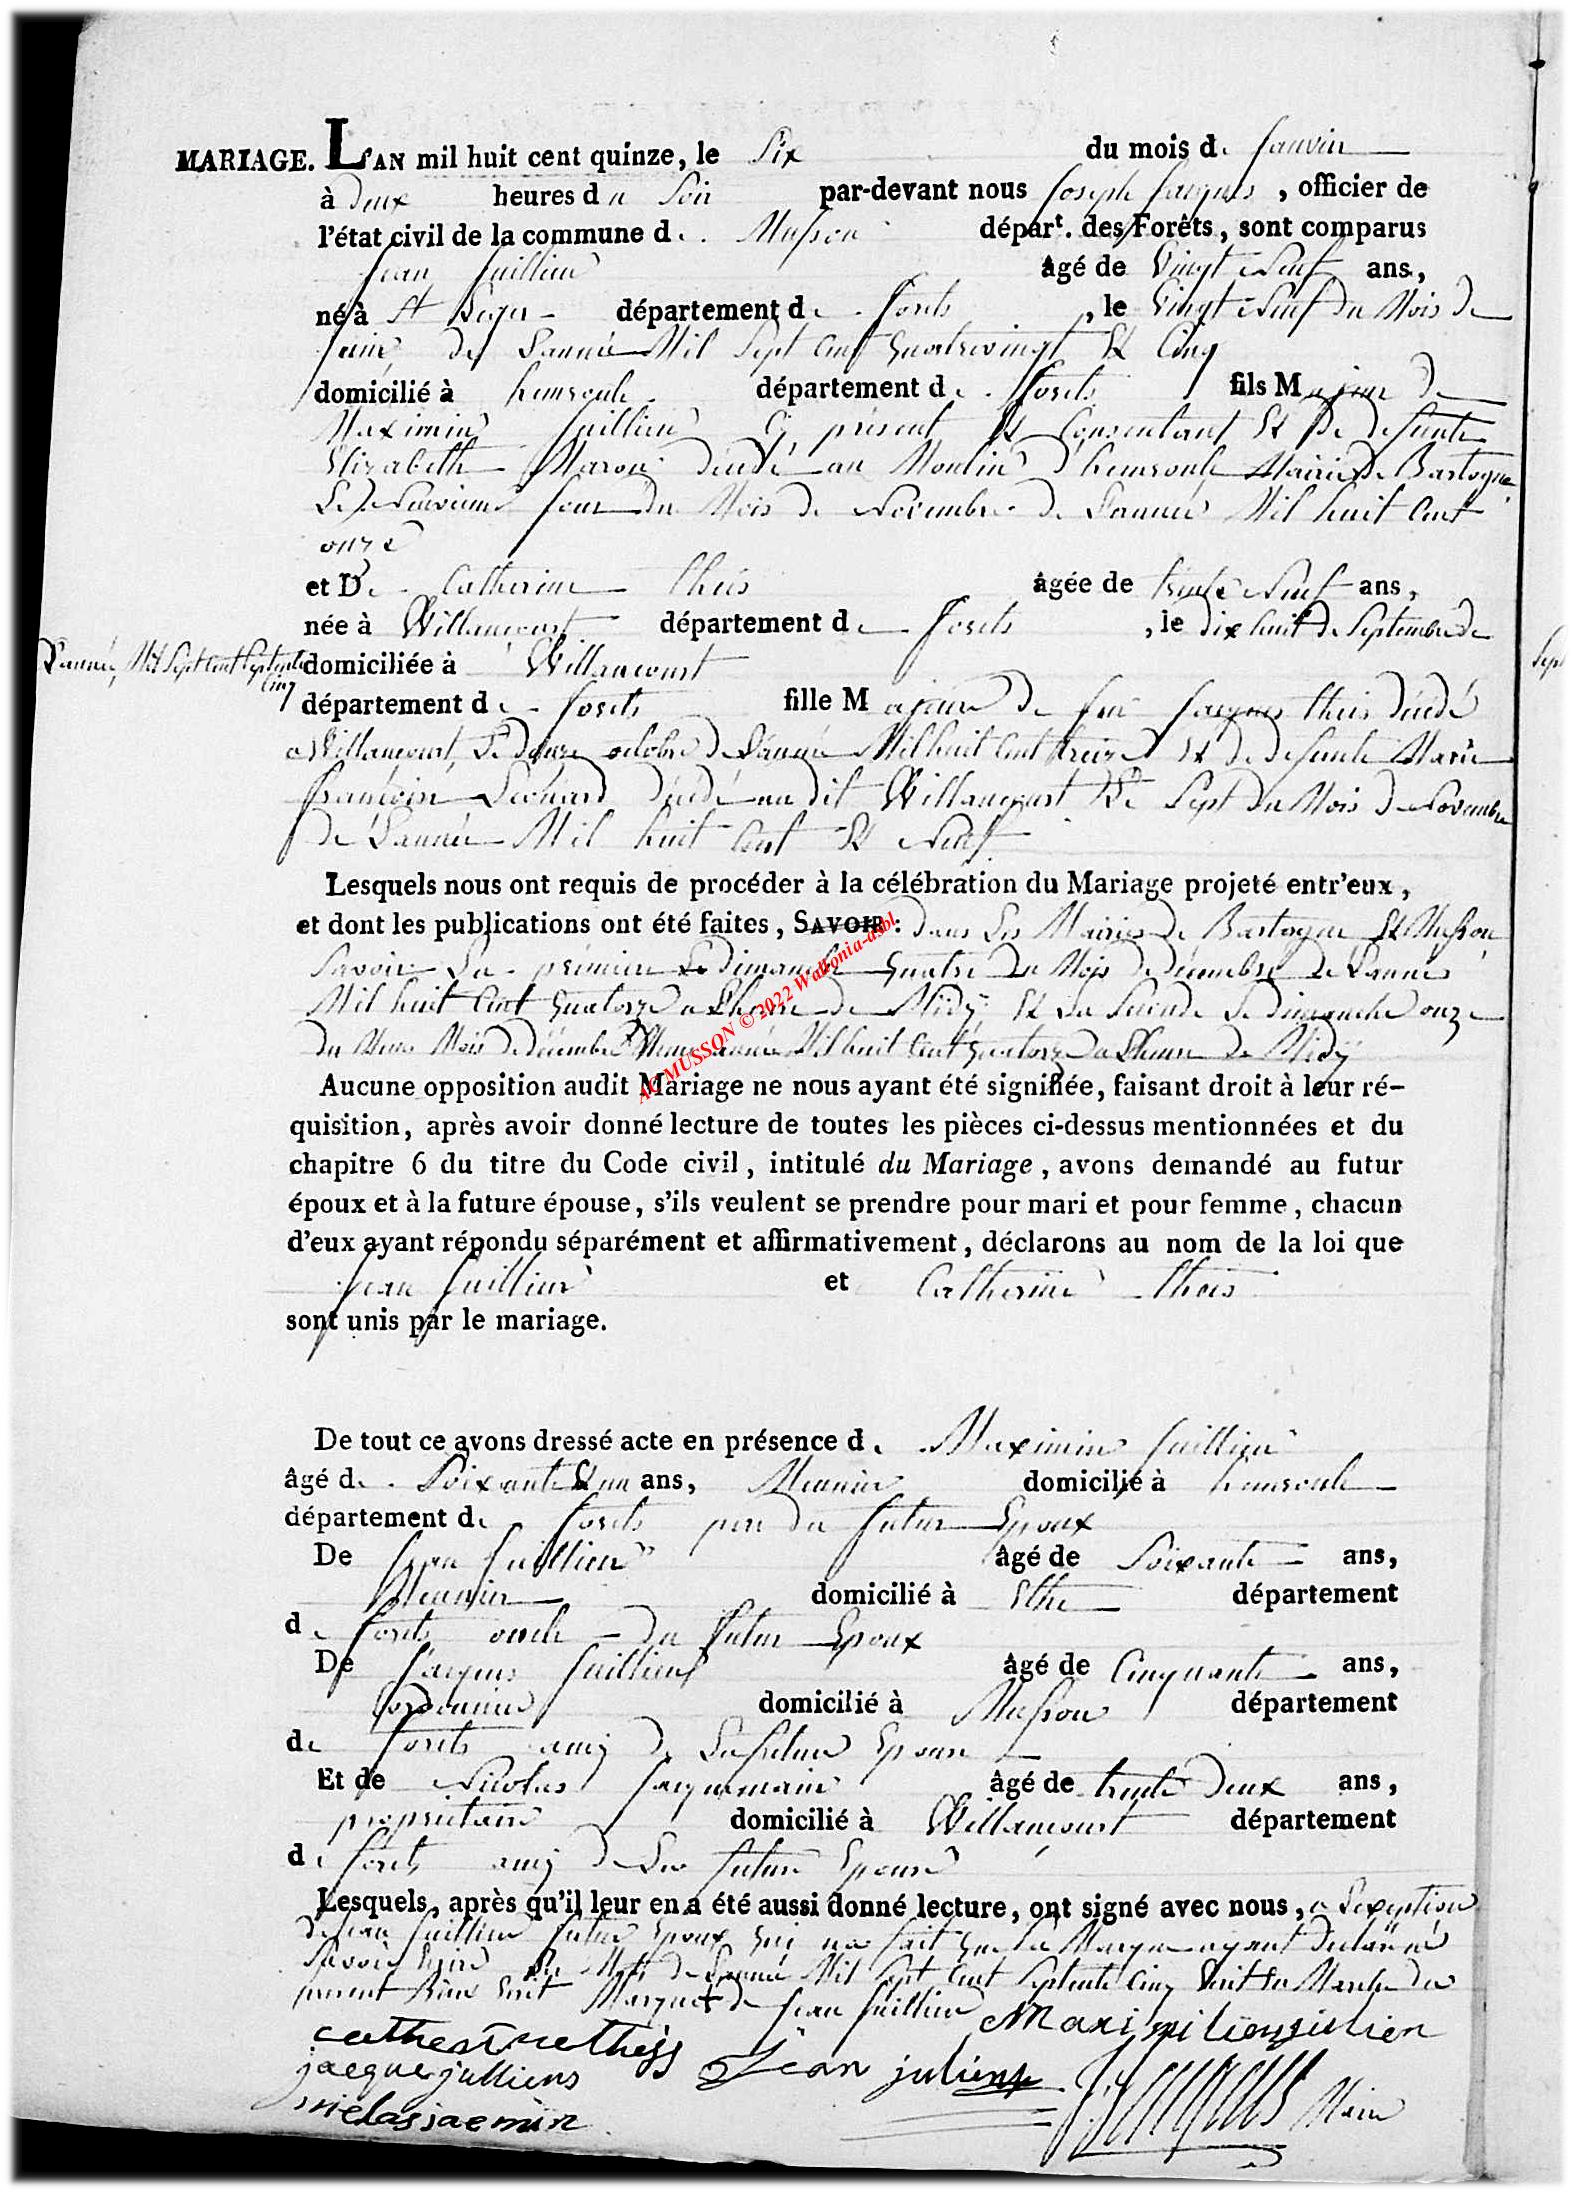 MARIAGE. L'AN mil huit cent quinze, le Six du mois de Janvier
à Deux heures du Soir par-devant nous Joseph Jacques, officier de
l'état civil de la commune de Musson départ. des Forêts, sont comparus
Jean Juillien âgé de Vingt Neuf ans,
né à St Leger département de forets, le Vingt Neuf du Mois de
de L'année Mil Sept Cent Quatrevingt Et Cinq
domicilié à hemroule département de forets fils Majeur de
Maximin Juillien Cy présent Et Consentant Et De defunte
Elizabeth décédé au Moulin d'hemroule Mairie De Bastogne
Le Neuvieme Jour du Mois de Novembre de L'année Mil huit Cent
onze
et De Catherine theis âgée de trente Neuf ans,
née à Willancourt département de forets, le dix huit de Septembre de
L'année Mil Sept Cent Septente Cinq domiciliée à Willancourt
département de forets fille Majeure de feu Jacques theis décédé
a Willancourt, Le douze octobre de L'année Mil huit Cent treize Et de defunte Marie
françoise Leonard décédé au dit Willancourt Le Sept du Mois de Novembre
de L'année Mil huit Cent Et Neuf
Lesquels nous ont requis de procéder à la célébration du Mariage projeté entr'eux,
et dont les publications ont été faites, SAVOIR: dans Les Mairies de Bastogne Et Musson
Savoir La premiere Le Dimanche Quatre du Mois de décembre de L'année
Mil huit Cent Quatorze a L'heure de Midÿ Et La Seconde Le dimanche onze
du Meme Mois de décembre Meme année Mil huit Cent Quatorze a L'heure de Midÿ
Aucune opposition audit Mariage ne nous ayant été signifiée, faisant droit à leur ré-
quisition, après avoir donné lecture de toutes les pièces ci-dessus mentionnées et du
chapitre 6 du titre du Code civil, intitulé du Mariage, avons demandé au futur
époux et à la future épouse, s'ils veulent se prendre pour mari et pour femme, chacun
d'eux ayant répondu séparément et affirmativement, déclarons au nom de la loi que
Jean Juillien et Catherine theis
sont unis par le mariage.
De tout ce avons dressé acte en présence de Maximin Juillien
âgé de Soixante Et un ans, Meunier domicilié à hemroule
département de forets pere du futur Epoux
De Jean Juillien âgé de Soixante ans,
Meunier domicilié à Ethe département
de forets oncle du futur Epoux
De Jacques Juillien âgé de Cinquante ans,
Cordonnier domicilié à Musson département
de forets amÿ de La future Epouse
Et de Nicolas Jacquemain âgé de trente Deux ans,
proprietaire domicilié à Willancourt département
de forets amÿ de La future Epouse
Lesquels, après qu'il leur en a été aussi donné lecture, ont signé avec nous, a L'exeption
de Jean Juillien futur Epoux Qui na fait Que La Marque ayant Declaré ne
Savoir Ecrire de L'année Mil Sept Cent Septente Cinq Ecrit En Marche du
présent Ecrit Marque de Jean Juillien Maximilien julien
catherine theis Jean juliens
jacque julliens
nicolas jacmin Maire
AC MUSSON © 2022 Wallonia-asbl